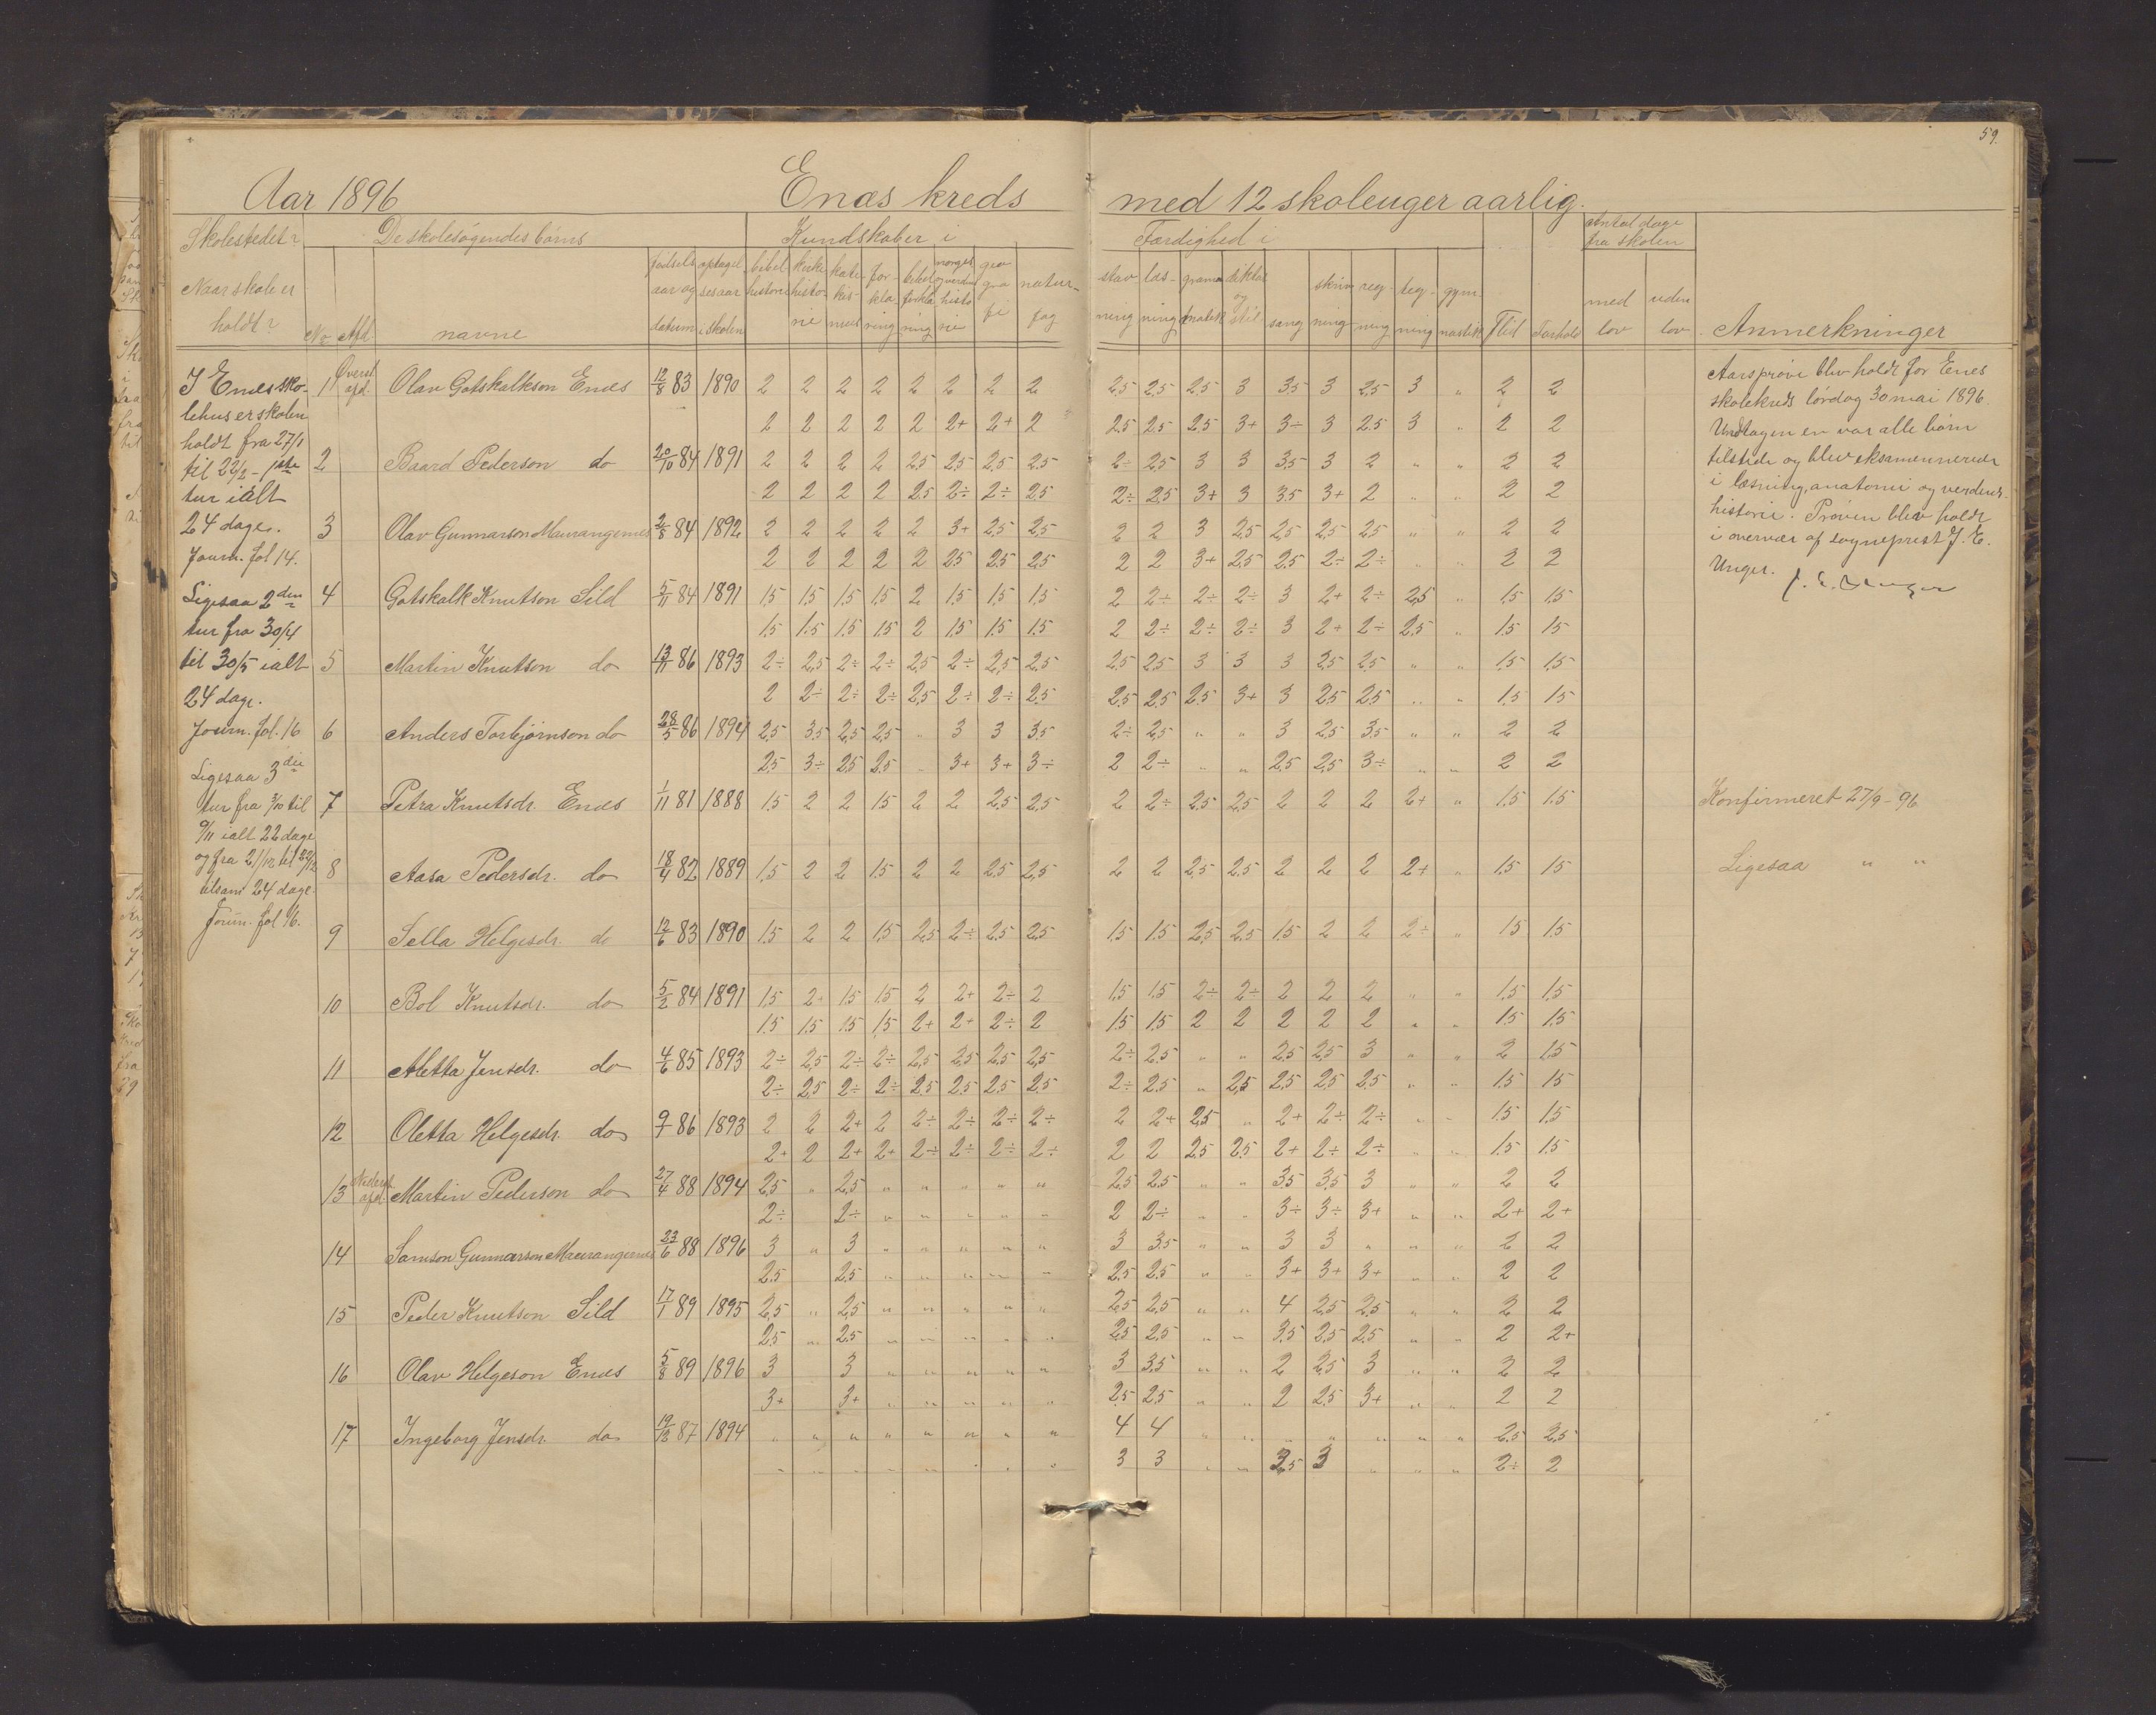 59.
Aar 1896 Enæs kreds med 12 skoleuger aarlig.
Skolestedet? De skolesøgendes børns Kundskaber i Færdighed i Antal dage fra skolen
Naar skolen er holdt? No Afd. navne fødsels aar og datum optagelsesaar i skolen bibelhistorie kirkehistorie katekismus forklaring bibelforklaring norges og verdens historie geografi naturfag stavning læsning gramatik diktat og stil sang skrivning regning tegning gymnastik Flid Forhold med lov uden lov Anmerkninger
I Enæs sko-
lehus er skolen
holdt fra 27/1
til 22/2 - 1ste
tur ialt
24 dage.
Journ. fol 14.
Ligesaa 2den
tur fra 30/4
til 30/5 ialt
24 dage.
Journ. fol. 16
Ligesaa 3die
tur fra 3/10 til
9/11 ialt 22 dage
og fra 21/12 til 22/12
tilsam 24 dage.
Journ. fol 16.
1 Øverst afd. Olav Gotskalkson Enæs 12/8 83 1890 2 2 2 2 2 2 2 2 2,5 2,5 2,5 3 3,5 3 2,5 3 " 2 2
2 2 2 2 2 2+ 2+ 2 2,5 2,5 2,5 3+ 3÷ 3 2,5 3 " 2 2
2 Baard Pederson do 20/10 84 1891 2 2 2 2 2,5 2,5 2,5 2,5 2÷ 2,5 3 3 3,5 3 2 " " 2 2
2 2 2 2 2,5 2÷ 2÷ 2,5 2÷ 2,5 3+ 3 3,5 3+ 2 " " 2 2
3 Olav Gunnarson Maurangernes 2/8 84 1892 2 2 2 2 2 3+ 2,5 2,5 2 2 3 2,5 2,5 2,5 2,5 " " 2 2
2 2 2 2 2 2,5 2,5 2,5 2 2 3+ 2,5 2,5 2÷ 2÷ " " 2 2
4 Gotskalk Knutson Sild 5/11 84 1891 1,5 1,5 1,5 1,5 2 1,5 1,5 1,5 2 2÷ 2÷ 2÷ 3 2+ 2÷ 2,5 " 1,5 1,5
1,5 1,5 1,5 1,5 2 1,5 1,5 1,5 2 2÷ 2÷ 2÷ 3 2+ 2÷ 2,5 " 1,5 1,5
5 Martin Knutson do 13/11 86 1893 2÷ 2,5 2÷ 2÷ 2,5 2÷ 2,5 2,5 2,5 2,5 3 3 3 2,5 2,5 " " 1,5 1,5
2 2÷ 2÷ 2÷ 2,5 2÷ 2÷ 2,5 2,5 2,5 2,5 3+ 3 2,5 2,5 " " 1,5 1,5
6 Anders Torbjørnson do 28/5 86 1894 2,5 3,5 2,5 2,5 " 3 3 3,5 2÷ 2,5 " " 3 2,5 3,5 " " 2 2
2,5 3÷ 2,5 2,5 " 3+ 3+ 3÷ 2 2÷ " " 2,5 2,5 3÷ " " 2 2
7 Petra Knutsdr. Enæs 1/11 81 1888 1,5 2 2 1,5 2 2 2,5 2,5 2 2÷ 2,5 2,5 2 2 2 2+ " 1,5 1,5 Konfirmeret 27/9 - 96
8 Aasa Pedersdr. do 18/4 82 1889 1,5 2 2 1,5 2 2 2,5 2,5 2 2 2,5 2,5 2 2 2 2+ " 1,5 1,5 Ligesaa " "
9 Sella Helgesdr. do 12/6 83 1890 1,5 2 2 1,5 2,5 2÷ 2,5 2,5 1,5 1,5 2,5 2,5 1,5 2 2 2÷ " 1,5 1,5
10 Bol Knutsdr. do 5/2 84 1891 1,5 2+ 1,5 1,5 2 2+ 2÷ 2 1,5 1,5 2÷ 2÷ 2 2 2 " " 1,5 1,5
1,5 1,5 1,5 1,5 2+ 2+ 2÷ 2 1,5 1,5 2 2 2 2 2 " " 1,5 1,5
11 Aletta Jensdr. do 4/6 85 1893 2÷ 2,5 2÷ 2÷ 2,5 2,5 2,5 2,5 2÷ 2,5 " " 2,5 2,5 3 " " 2 1,5
2÷ 2,5 2÷ 2÷ 2,5 2,5 2,5 2,5 2÷ 2,5 " 2,5 2,5 2,5 2,5 " " 1,5 1,5
12 Oletta Helgesdr. do 9/7 86 1893 2 2 2+ 2 2÷ 2÷ 2÷ 2÷ 2 2+ 2,5 " 2+ 2÷ 2÷ " " 1,5 1,5
2+ 2 2+ 2+ 2÷ 2÷ 2÷ 2÷ 2 2 2,5 2,5 2+ 2÷ 2÷ " " 1,5 1,5
13 Nederst afd. Martin Pederson do 27/4 88 1894 2,5 " 2,5 " " " " " 2,5 2,5 " " 3,5 3,5 3 " " 2 2
2÷ 2÷ " " " " " 2 2÷ " " 3÷ 3÷ 3+ " " 2+ 2+
14 Samson Gunnarson Maurangernes 23/6 88 1896 3 " 3 " " " " " 3 3,5 " " 3 3 " " " 2 2
2,5 2,5 " " " " " 2,5 2,5 " " 3+ 3+ 3+ " " 2 2
15 Peder Knutson Sild 17/1 89 1895 2,5 " 2,5 " " " " " 2,5 2,5 " " 4 2,5 2,5 " " 2 2
2,5 " 2,5 " " " " " 2,5 2,5 " " 3,5 2,5 2,5 " " 2 2+
16 Olav Helgeson Enæs 5/8 89 1896 3 3 " " " " " 3 3,5 " " 2 2,5 3 " " 2 2
3+ 3+ " " " " " 2,5 2,5 " " 2 2,5 3+ " " 2 2
17 Ingeborg Jensdr. do 19/12 87 1894 " " " " " " " " 4 4 " " " " " " " 2,5 2,5
" " " " " " " " 3 3 " " 2,5 3 " " " 2÷ 2
Aarsprøve blev holdt for Enes
skolekreds lørdag 30 mai 1896.
Undtagen en var alle børn
tilstede og blev eksamenerede
i læsning, anatomi og verdens-
historie. Prøven blev holdt
i overvær af sogneprest J. E.
Unger. J. E. Unger